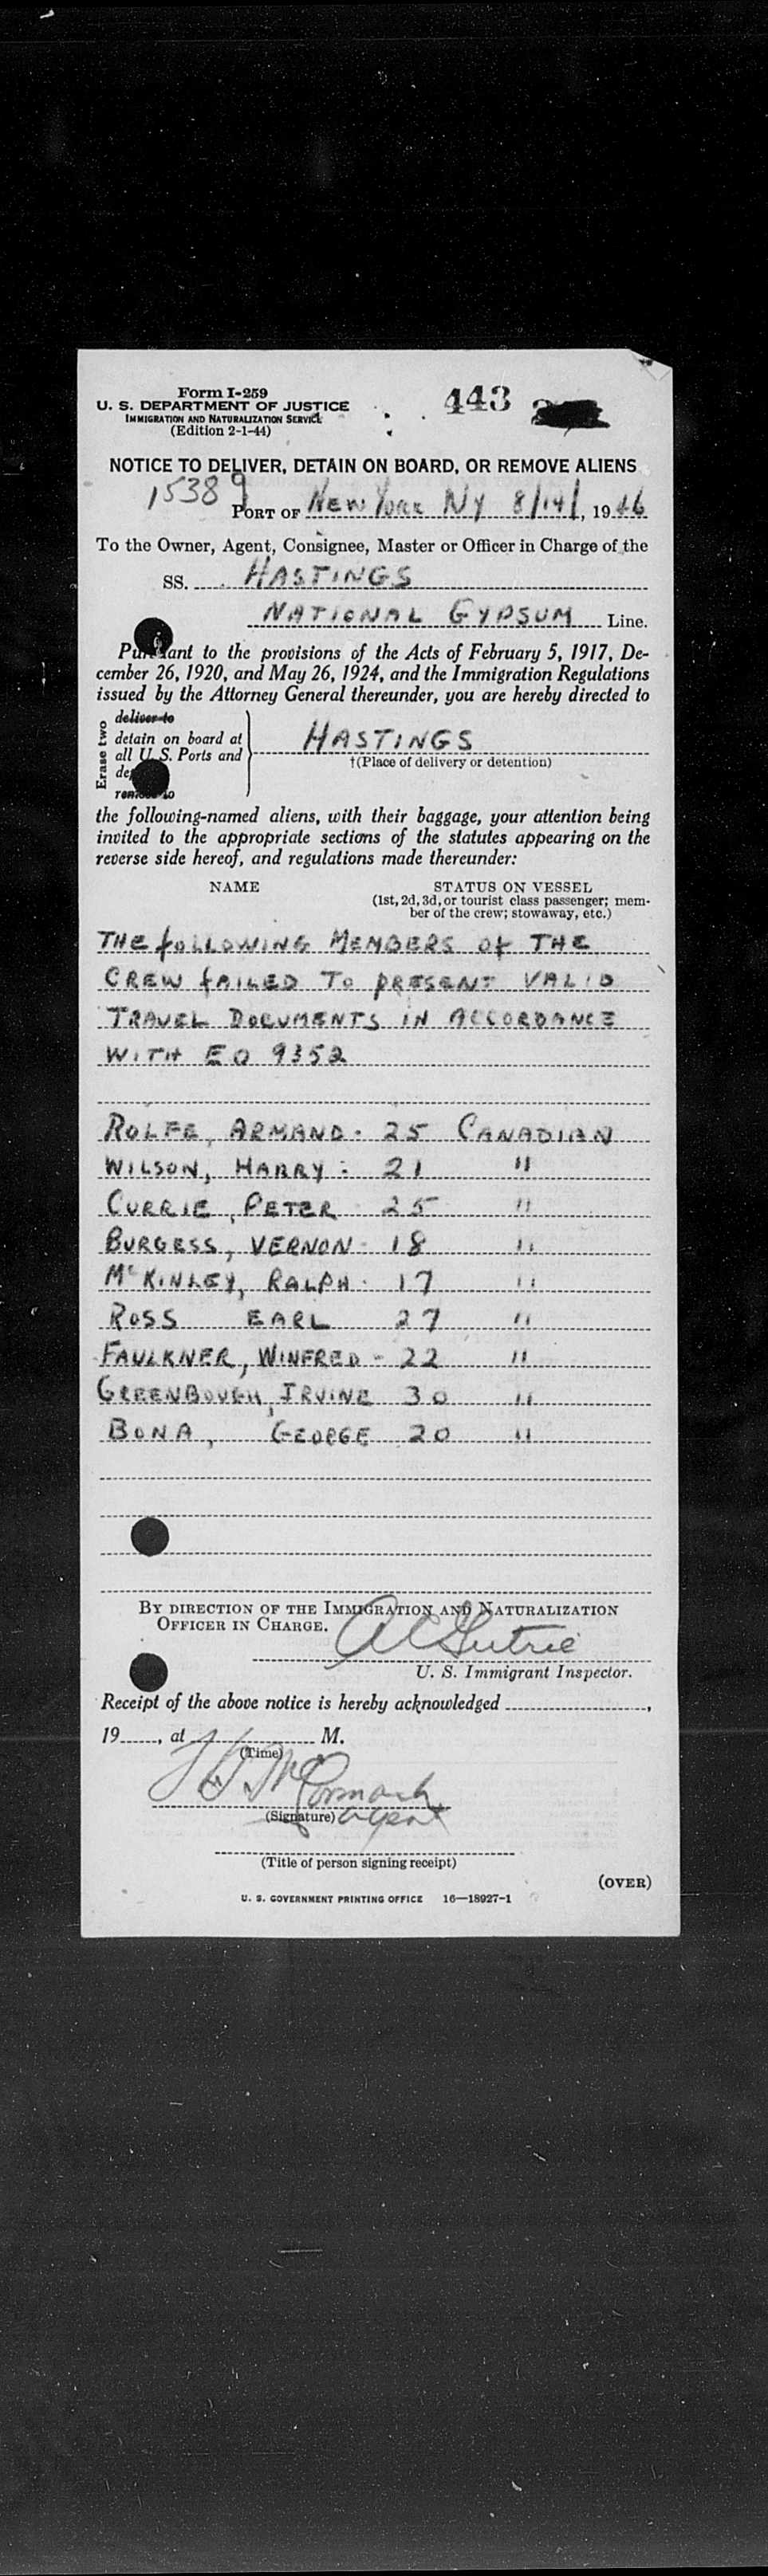 Form I-259
U. S. DEPARTMENT OF JUSTICE
IMMIGRATION AND NATURALIZATION SERVICE
(Edition 2-1-44)
443
NOTICE TO DELIVER, DETAIN ON BOARD, OR REMOVE ALIENS
15389
PORT OF NEW YORK NY 8/14/, 1946
To the Owner, Agent, Consignee, Master or Officer in Charge of the
SS. HASTINGS
NATIONAL GYPSUM Line.
Pursuant to the provisions of the Acts of February 5, 1917, De-
cember 26, 1920, and May 26, 1924, and the Immigration Regulations
issued by the Attorney General thereunder, you are hereby directed to
Erase two
deliver to
detain on board at
all U. S. Ports and
HASTINGS
†(Place of delivery or detention)
remove to
the following-named aliens, with their baggage, your attention being
invited to the appropriate sections of the statutes appearing on the
reverse side hereof, and regulations made thereunder:
NAME STATUS ON VESSEL
(1st, 2d, 3d, or tourist class passenger; mem-
ber of the crew; stowaway, etc.)
THE FOLLOWING MEMBERS OF THE
CREW FAILED TO PRESENT VALID
TRAVEL DOCUMENTS IN ACCORDANCE
WITH EO 9352
ROLFE, ARMAND - 25 CANADIAN
WILSON, HARRY - 21 "
CURRIE, PETER 25 "
BURGESS, VERNON - 18 "
McKINLEY, RALPH - 17 "
ROSS EARL 27 "
FAULKNER, WINFRED - 22 "
GREENBOUGH, IRVINE 30 "
BONA, GEORGE 20 "
BY DIRECTION OF THE IMMIGRATION AND NATURALIZATION
OFFICER IN CHARGE.
A C Gutrie
U. S. Immigrant Inspector.
Receipt of the above notice is hereby acknowledged ,
19 , at M.
(Time)
McCormack
(Signature) agent
(Title of person signing receipt)
(OVER)
U. S. GOVERNMENT PRINTING OFFICE 16—18927-1